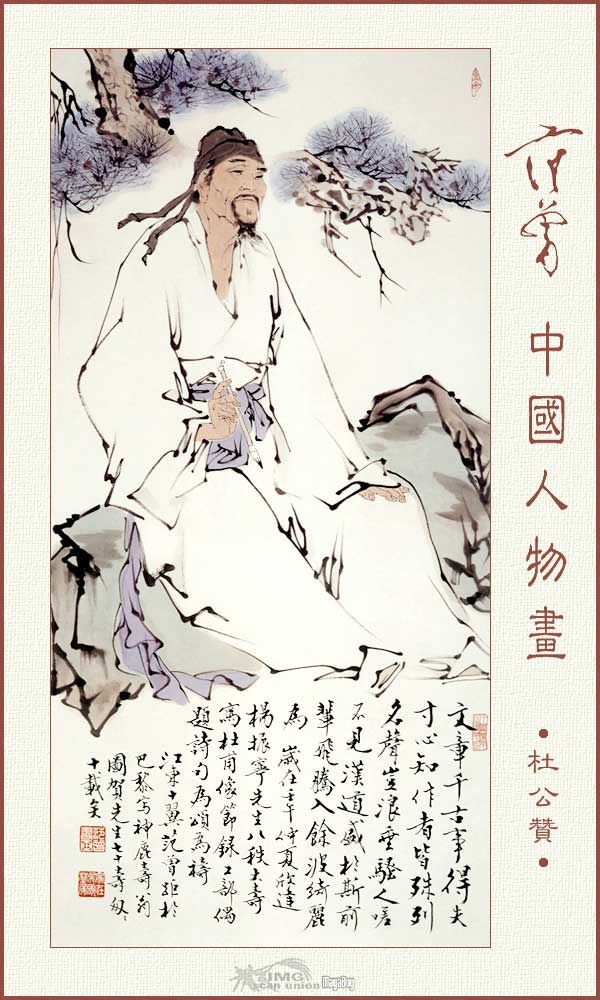 范曾
中國人物畫
•杜公贊•
文章千古事得失
寸心知作者皆殊列
名聲豈浪垂騷人嗟
不見漢道盛於斯前
輩飛騰入餘波綺麗
為 歲在壬午仲夏欣逢
楊振寧先生八秩大壽
寫杜甫像節錄工部偶
題詩句為頌為禱
江東十翼范曾距於
巴黎寫神鹿壽翁
圖賀先生七十壽匆々
十載矣
IMG
scan union